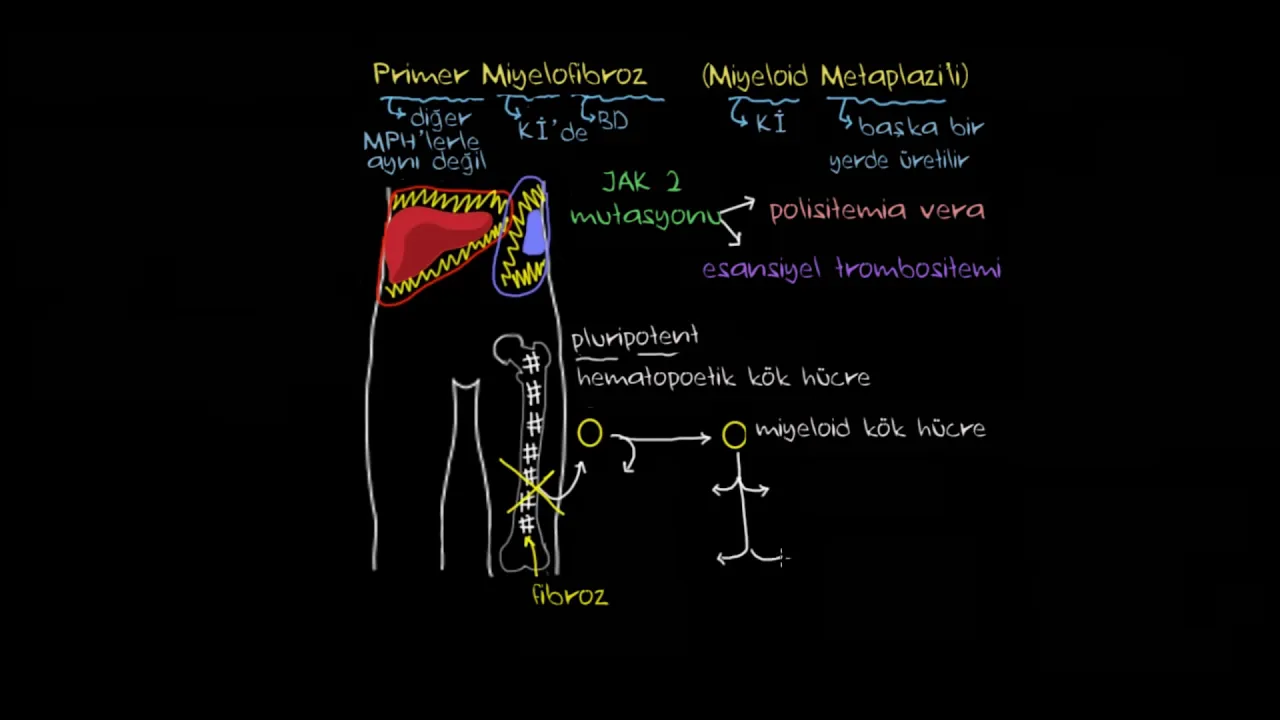 Primer Miyelofibroz (Miyeloid Metaplazi'li)
diğer
MPH'lerle
aynı değil
Kİ'de
BD
Kİ
başka bir
yerde üretilir
JAK 2
mutasyonu
polisitemia vera
esansiyel trombositemi
pluripotent
hematopoetik kök hücre
miyeloid kök hücre
fibroz